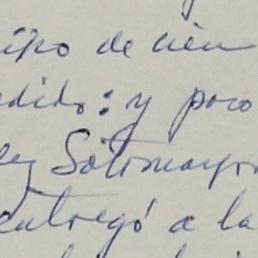 tipo de cien
edido: y poco
ley Sotomayor
entregó a la